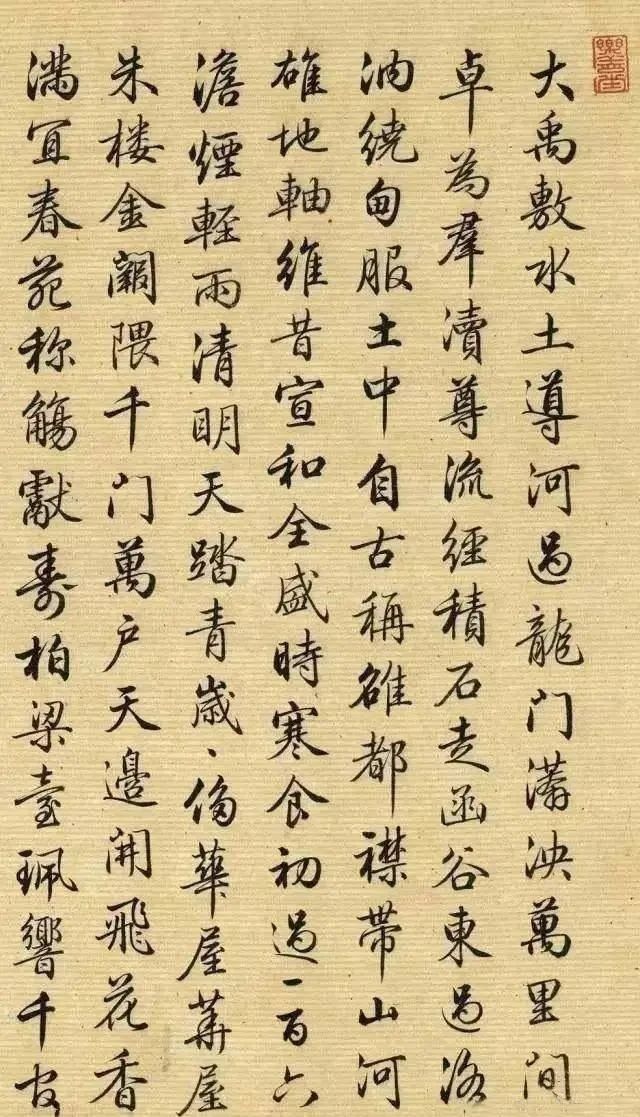 大禹敷水土導河過龍门漭泱萬里间
卓為羣瀆尊流經積石走函谷東過洛
汭繞甸服土中自古稱雄都襟帶山河
雄地軸維昔宣和全盛時寒食初過一百六
澹煙輕雨清明天踏青歲〻侈華屋華屋
朱楼金闕隈千门萬户天邊開飛花香
滿宜春苑称觴獻壽柏梁臺珮響千官